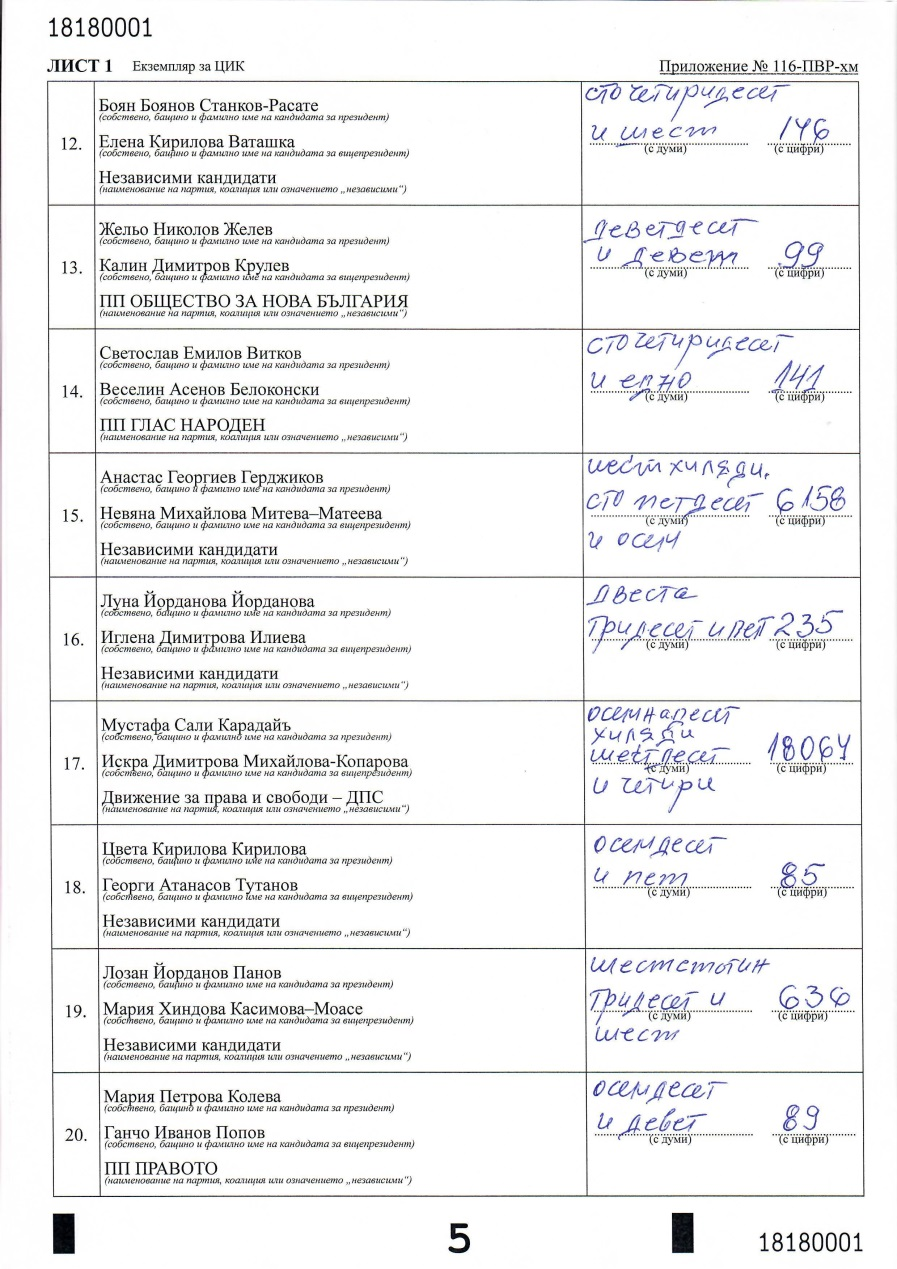 18180001
ЛИСТ 1 Екземпляр за ЦИК Приложение № 116-ПВР-хм
12.
Боян Боянов Станков-Расате
(собствено, бащино и фамилно име на кандидата за президент)
Елена Кирилова Ваташка
(собствено, бащино и фамилно име на кандидата за вицепрезидент)
Независими кандидати
(наименование на партия, коалиция или означението „независими“)
сто четиридесет
и шест 146
(с думи) (с цифри)
13.
Жельо Николов Желев
(собствено, бащино и фамилно име на кандидата за президент)
Калин Димитров Крулев
(собствено, бащино и фамилно име на кандидата за вицепрезидент)
ПП ОБЩЕСТВО ЗА НОВА БЪЛГАРИЯ
(наименование на партия, коалиция или означението „независими“)
деветдесет
и девет 99
(с думи) (с цифри)
14.
Светослав Емилов Витков
(собствено, бащино и фамилно име на кандидата за президент)
Веселин Асенов Белоконски
(собствено, бащино и фамилно име на кандидата за вицепрезидент)
ПП ГЛАС НАРОДЕН
(наименование на партия, коалиция или означението „независими“)
сто четиридесет
и едно 141
(с думи) (с цифри)
15.
Анастас Георгиев Герджиков
(собствено, бащино и фамилно име на кандидата за президент)
Невяна Михайлова Митева–Матеева
(собствено, бащино и фамилно име на кандидата за вицепрезидент)
Независими кандидати
(наименование на партия, коалиция или означението „независими“)
шест хиляди.
сто петдесет 6158
(с думи) (с цифри)
и осем
16.
Луна Йорданова Йорданова
(собствено, бащино и фамилно име на кандидата за президент)
Иглена Димитрова Илиева
(собствено, бащино и фамилно име на кандидата за вицепрезидент)
Независими кандидати
(наименование на партия, коалиция или означението „независими“)
двеста
тридесет и пет 235
(с думи) (с цифри)
17.
Мустафа Сали Карадайъ
(собствено, бащино и фамилно име на кандидата за президент)
Искра Димитрова Михайлова-Копарова
(собствено, бащино и фамилно име на кандидата за вицепрезидент)
Движение за права и свободи – ДПС
(наименование на партия, коалиция или означението „независими“)
осемнадесет
хиляди
шестдесет 18064
(с думи) (с цифри)
и четири
18.
Цвета Кирилова Кирилова
(собствено, бащино и фамилно име на кандидата за президент)
Георги Атанасов Тутанов
(собствено, бащино и фамилно име на кандидата за вицепрезидент)
Независими кандидати
(наименование на партия, коалиция или означението „независими“)
осемдесет
и пет 85
(с думи) (с цифри)
19.
Лозан Йорданов Панов
(собствено, бащино и фамилно име на кандидата за президент)
Мария Хиндова Касимова–Моасе
(собствено, бащино и фамилно име на кандидата за вицепрезидент)
Независими кандидати
(наименование на партия, коалиция или означението „независими“)
шестстотин
тридесет и 636
(с думи) (с цифри)
шест
20.
Мария Петрова Колева
(собствено, бащино и фамилно име на кандидата за президент)
Ганчо Иванов Попов
(собствено, бащино и фамилно име на кандидата за вицепрезидент)
ПП ПРАВОТО
(наименование на партия, коалиция или означението „независими“)
осемдесет
и девет 89
(с думи) (с цифри)
5
18180001